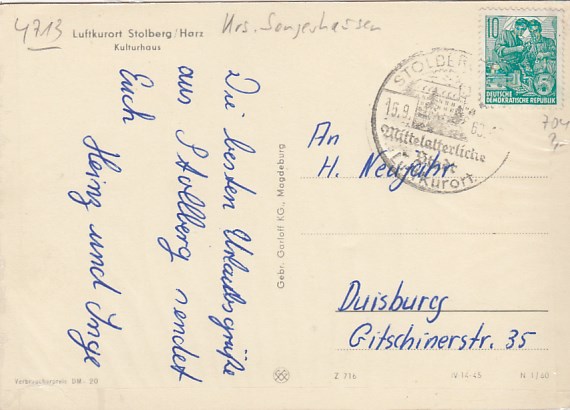 4713
Luftkurort Stolberg/Harz
Kulturhaus
Krs. Sangerhausen
Die besten Urlaubsgrüße
aus Stollberg sendet
Euch
Heinz und Inge
Verbraucherpreis DM -.20
Gebr. Garloff KG., Magdeburg
10
DEUTSCHE
DEMOKRATISCHE REPUBLIK
STOLBERG
15.9.
Mittelalterliche
Luftkurort
704
An
H. Neujahr
Duisburg
Gitschinerstr. 35
Z 716
IV-14-45
N 1/60